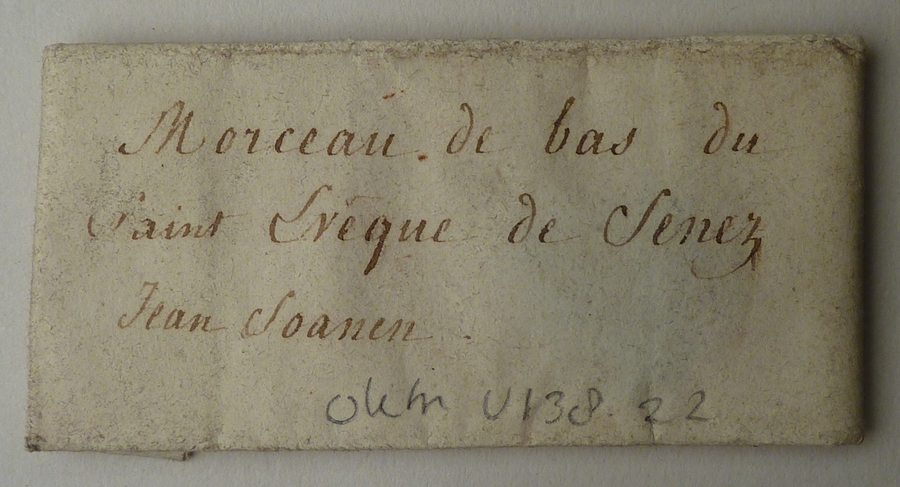 Morceau de bas du
Saint Evêque de Senez
Jean Soanen.
okm v138.22